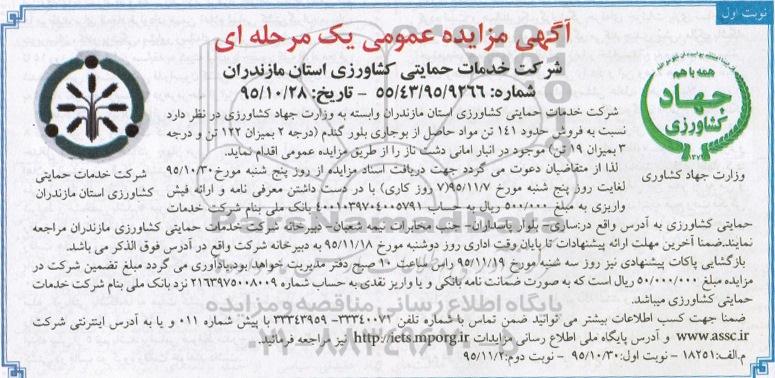 نوبت اول
آگهی مزایده عمومی یک مرحله ای
شرکت خدمات حمایتی کشاورزی استان مازندران
شماره: ۵۵/۴۳/۹۵/۹۲۶۶ - تاریخ: ۹۵/۱۰/۲۸
همه با هم
جهاد
کشاورزی
وزارت جهاد کشاوری
شرکت خدمات حمایتی
کشاورزی استان مازندران
شرکت خدمات حمایتی کشاورزی استان مازندران وابسته به وزارت جهاد کشاورزی در نظر دارد
نسبت به فروش حدود ۱۴۱ تن مواد حاصل از بوجاری بلور گندم (درجه ۲ بمیزان ۱۲۲ تن و درجه
۳ بمیزان ۱۹ تن) موجود در انبار امانی دشت ناز را از طریق مزایده عمومی اقدام نماید.
لذا از متقاضیان دعوت می گردد جهت دریافت اسناد مزایده از روز پنج شنبه مورخ ۹۵/۱۰/۳۰
لغایت روز پنج شنبه مورخ ۹۵/۱۱/۷(۷ روز کاری) با در دست داشتن معرفی نامه و ارائه فیش
واریزی به مبلغ ۵۰۰/۰۰۰ ریال به حساب ۴۰۰۱۰۳۹۷۰۴۰۰۵۷۹۱ بانک ملی بنام شرکت خدمات
حمایتی کشاورزی به آدرس واقع در:ساری- بلوار پاسداران- جنب مخابرات نیمه شعبان- دبیرخانه شرکت خدمات حمایتی کشاورزی مازندران مراجعه
نمایند.ضمنا آخرین مهلت ارائه پیشنهادات تا پایان وقت اداری روز دوشنبه مورخ ۹۵/۱۱/۱۸ به دبیرخانه شرکت واقع در آدرس فوق الذکر می باشد.
بازگشایی پاکات پیشنهادی نیز روز سه شنبه مورخ ۹۵/۱۱/۱۹ راس ساعت ۱۰ صبح دفتر مدیریت خواهد بود.یادآوری می گردد مبلغ تضمین شرکت در
مزایده مبلغ ۵۰/۰۰۰/۰۰۰ ریال است که به صورت ضمانت نامه بانکی و یا واریز نقدی به حساب شماره ۲۱۶۳۹۷۵۰۰۸۰۰۹ نزد بانک ملی بنام شرکت خدمات
حمایتی کشاورزی میباشد.
ضمنا جهت کسب اطلاعات بیشتر می توانید ضمن تماس با شماره تلفن ۳۳۳۴۰۰۷۱- ۳۳۳۴۳۹۵۹ با پیش شماره ۰۱۱ و یا به آدرس اینترنتی شرکت
www.assc.ir و آدرس پایگاه ملی اطلاع رسانی مزایدات http://iets.mporg.ir نیز مراجعه فرمائید.
م.الف: ۱۸۲۵۱ - نوبت اول: ۹۵/۱۰/۳۰ - نوبت دوم: ۹۵/۱۱/۲
ParsNamadData
پایگاه اطلاع رسانی مناقصه و مزایده
۰۲۱-۸۸۳۴۹۶۷۰-۵